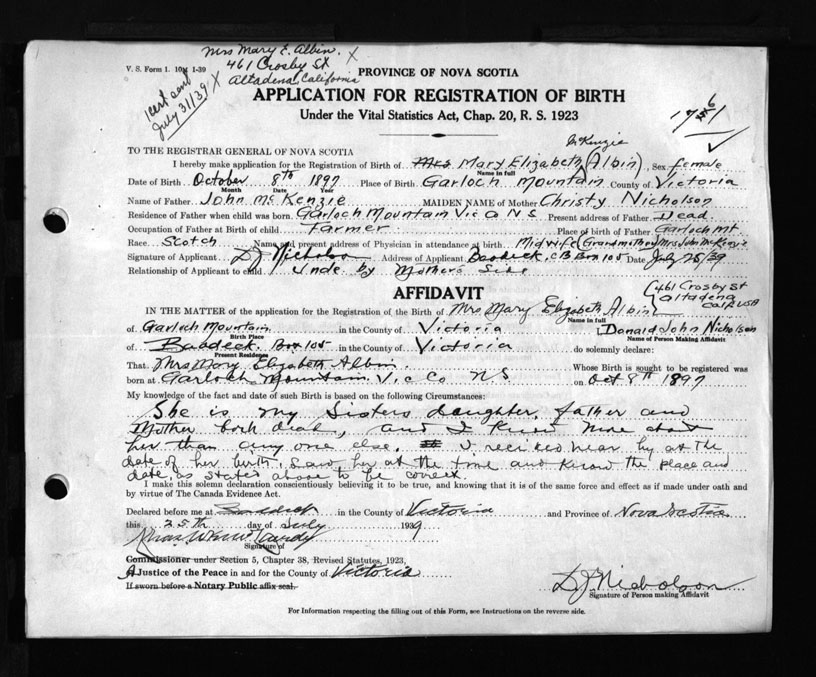 Mrs Mary E. Albin. X
V. S. Form 1. 10M 1-39
461 Crosby St X
Altadena, California
PROVINCE OF NOVA SCOTIA
cert sent
July 31/39
APPLICATION FOR REGISTRATION OF BIRTH
Under the Vital Statistics Act, Chap. 20, R. S. 1923
TO THE REGISTRAR GENERAL OF NOVA SCOTIA
McKenzie
I hereby make application for the Registration of Birth of Mrs Mary Elizabeth (Albin), Sex female
Name in full
Date of Birth October 8th 1897 Place of Birth Garloch Mountain County of Victoria
Month Date Year
Name of Father John McKenzie MAIDEN NAME of Mother Christy Nicholson
Residence of Father when child was born Garloch Mountain Vic Co N S Present address of Father Dead
Occupation of Father at Birth of child Farmer Place of birth of Father Garloch Mt
Race Scotch Name and present address of Physician in attendance at birth Midwife (Grandmother) Mrs John McKenzie
Signature of Applicant D J Nicholson Address of Applicant Baddeck, CB Box 105 Date July 25/39
Relationship of Applicant to child Uncle by Mothers Side
AFFIDAVIT
(461 Crosby St
Altadena
Calif USA
IN THE MATTER of the application for the Registration of the Birth of Mrs Mary Elizabeth Albin
Name in full
of Garloch Mountain in the County of Victoria I, Donald John Nicholson
Birth Place Name of Person Making Affidavit
of Baddeck Box 105 in the County of Victoria do solemnly declare:
Present Residence
That Mrs Mary Elizabeth Albin Whose Birth is sought to be registered was
born at Garloch Mountain Vic Co N S on Oct 8th 1897
My knowledge of the fact and date of such Birth is based on the following Circumstances:
She is my Sisters daughter, father and
Mother both dead, and I know more about
her than any one else. I recided near by at the
date of her birth, saw her at the time and know the place and
date, as stated above to be correct.
I make this solemn declaration conscientiously believing it to be true, and knowing that it is of the same force and effect as if made under oath and
by virtue of The Canada Evidence Act.
Declared before me at Baddeck in the County of Victoria and Province of Nova Scotia
this 25th day of July 1939
Signature of
Commissioner under Section 5, Chapter 38, Revised Statutes, 1923,
A Justice of the Peace in and for the County of Victoria
If sworn before a Notary Public affix seal.
D J Nicholson
Signature of Person making Affidavit
For Information respecting the filling out of this Form, see Instructions on the reverse side.